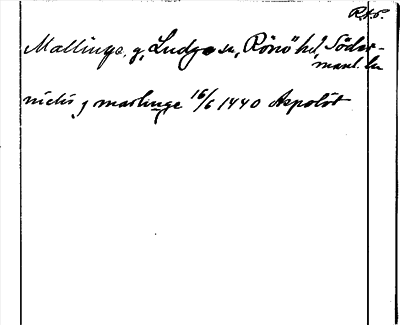 R.t.P.
Mallinge, g, Ludgo sn, Rönö hd, Söder-
manl. län
nielis j mashinge 16/6 1440 Aspolöt